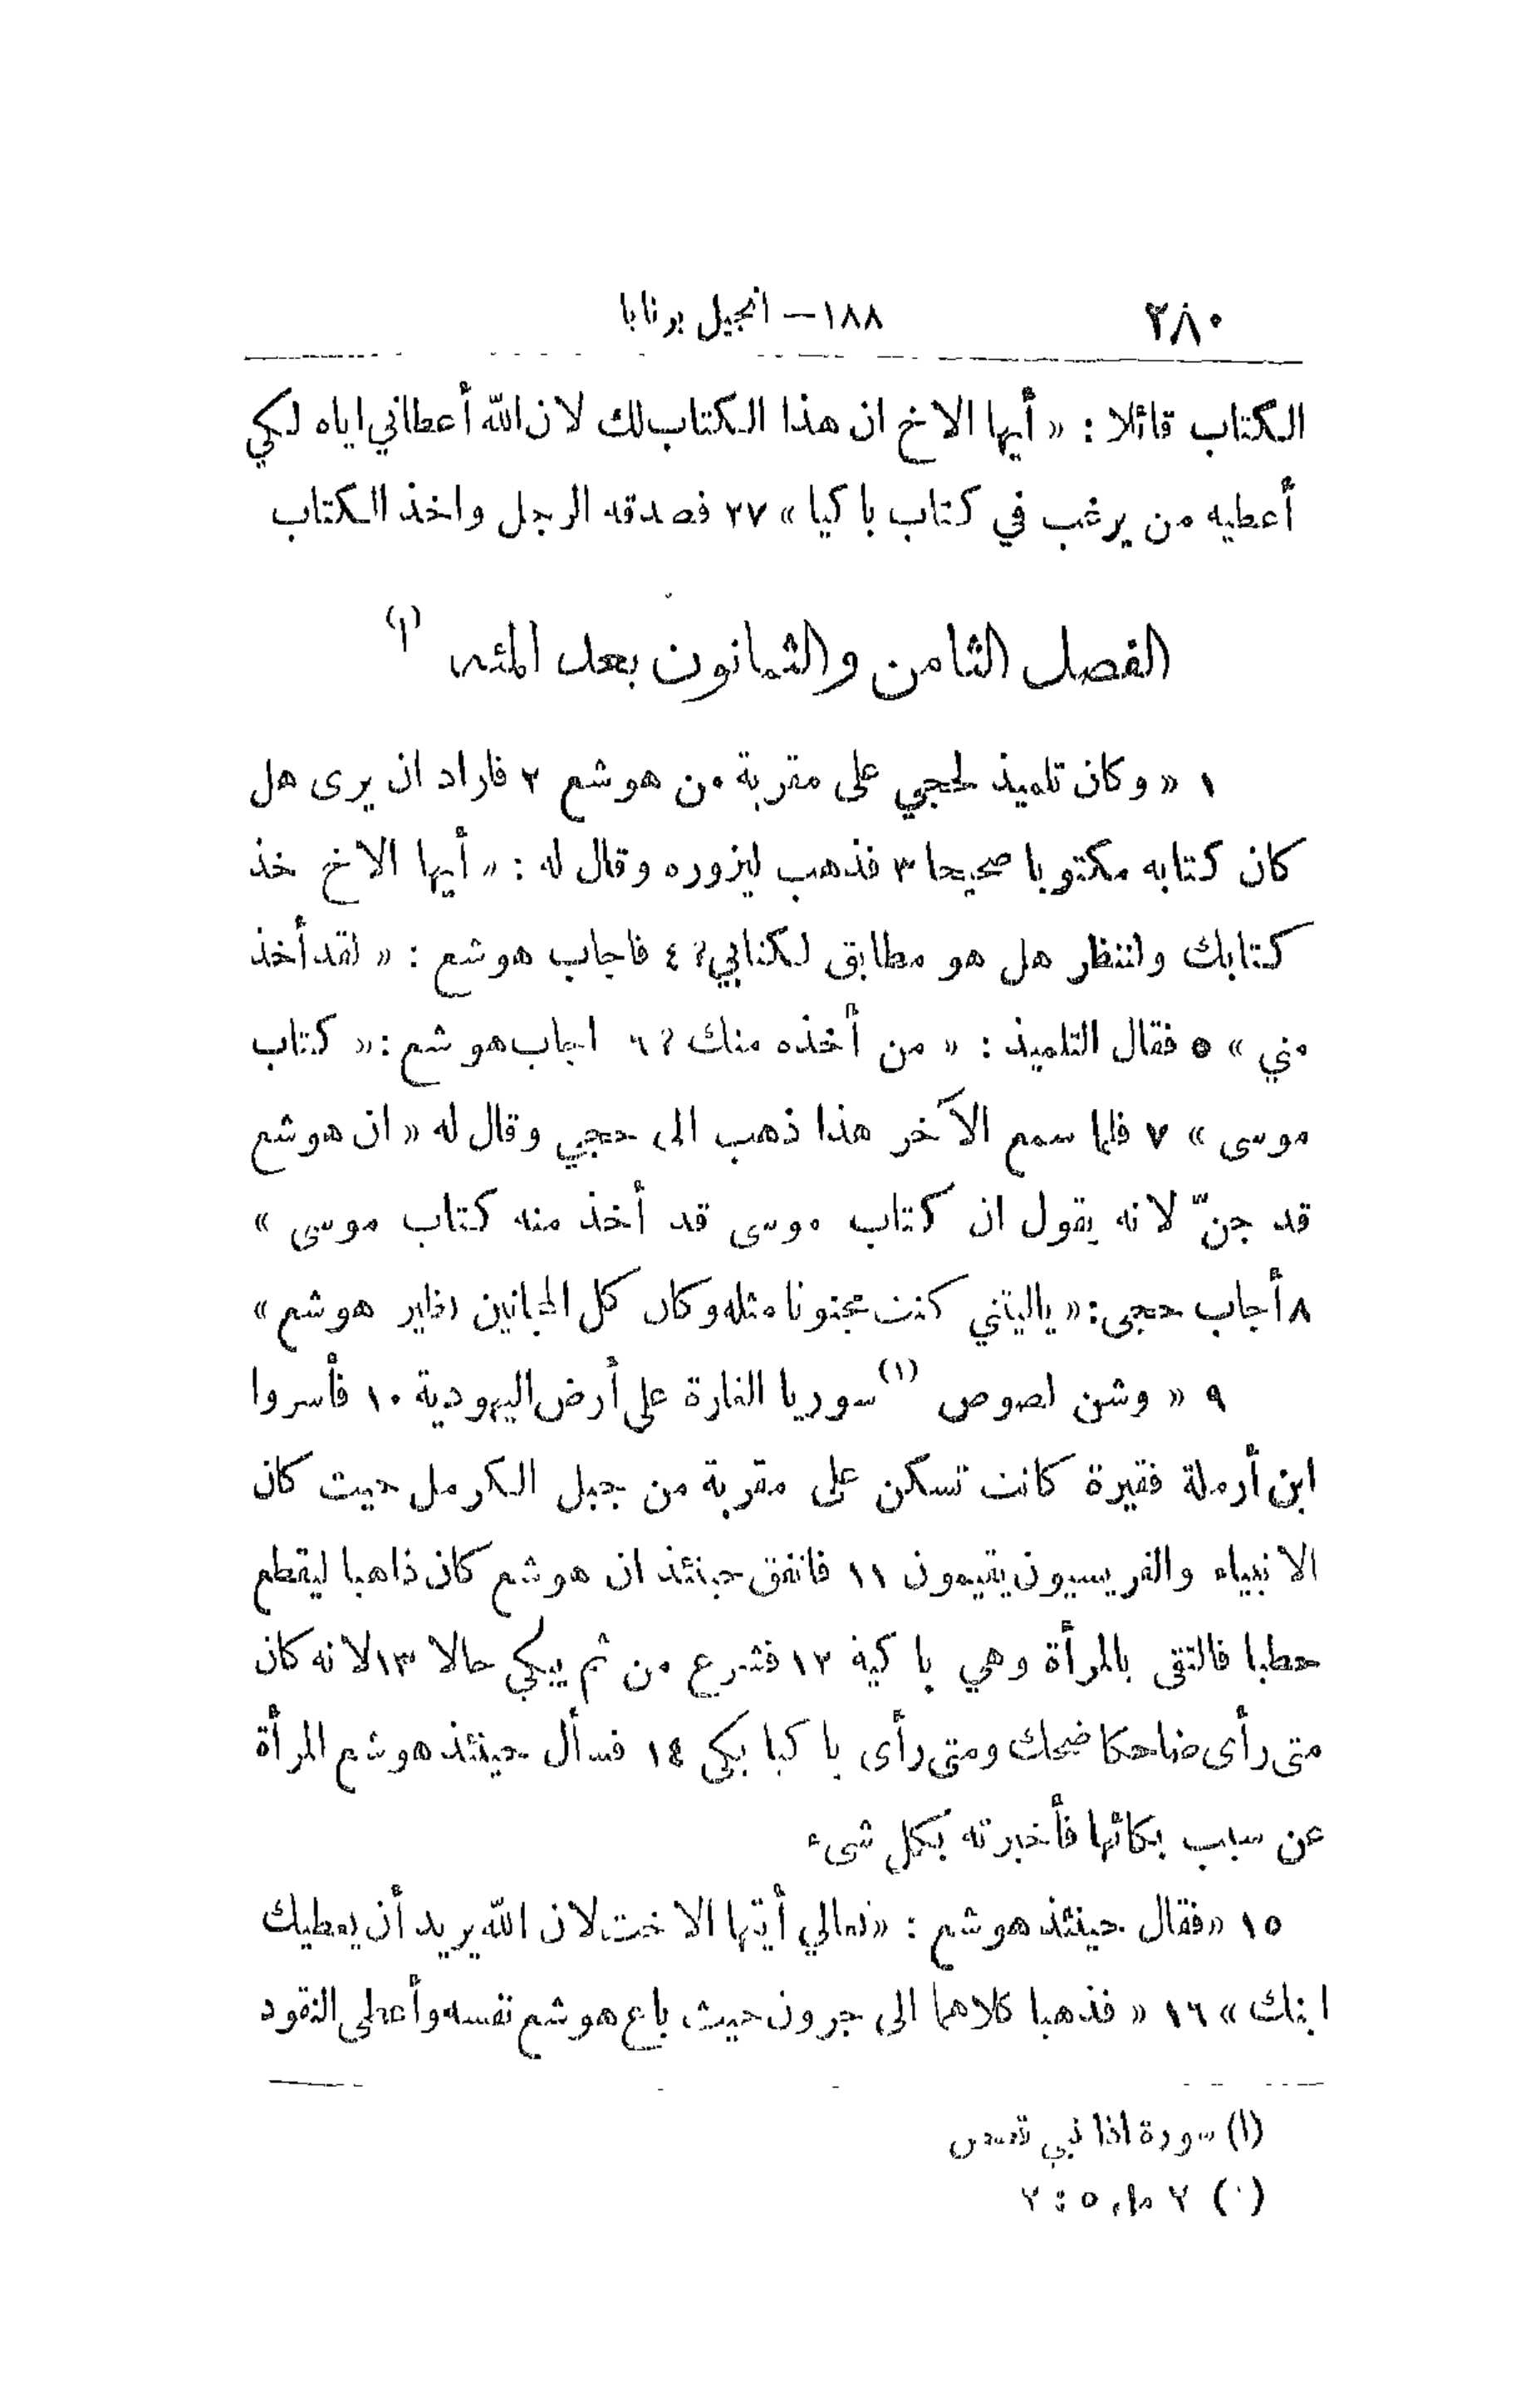 ٢٨٠ ١٨٨ — انجيل برنابا
الكتاب قائلا : « أيها الاخ ان هذا الكتاب لك لان الله أعطاني اياه لكي
أعطيه من يرغب في كتاب باكيا » ٣٧ فصدقه الرجل واخذ الكتاب
الفصل الثامن والثمانون بعد المئه (١)
١ « وكان تلميذ لحجي على مقربة من هوشع ٢ فاراد ان يرى هل
كان كتابه مكتوبا صحيحا ٣ فذهب ليزوره وقال له : « أيها الاخ خذ
كتابك ولننظر هل هو مطابق لكتابي ؟ ٤ فاجاب هوشع : « لقد أخذ
مني » ٥ فقال التلميذ : « من أخذه منك ؟ ٦ اجاب هوشع : « كتاب
موسى » ٧ فلما سمع الآخر هذا ذهب الى حجي وقال له « ان هوشع
قد جنّ لانه يقول ان كتاب موسى قد أخذ منه كتاب موسى »
٨ أجاب حجى : « ياليتني كنت مجنونا مثله وكان كل المجانين نظير هوشع »
٩ « وشن لصوص (١) سوريا الغارة على أرض اليهودية ١٠ فأسروا
ابن أرملة فقيرة كانت تسكن على مقربة من جبل الكرمل حيث كان
الانبياء والفريسيون يقيمون ١١ فاتفق حينئذ ان هوشع كان ذاهبا ليقطع
حطبا فالتقى بالمرأة وهي باكية ١٢ فشرع من ثم يبكي حالا ١٣ لانه كان
متى رأى ضاحكا ضحك ومتى رأى باكيا بكى ١٤ فسأل حينئذ هوشع المرأة
عن سبب بكائها فأخبرته بكل شىء
١٥ « فقال حينئذ هوشع : « تعالي أيتها الاخت لان الله يريد أن يعطيك
ابنك » ١٦ « فذهبا كلاهما الى جرون حيث باع هوشع نفسه وأعطى النقود
(ا) سورة اذا نبي قصص
(١) ٢ مل ٥ : ٢